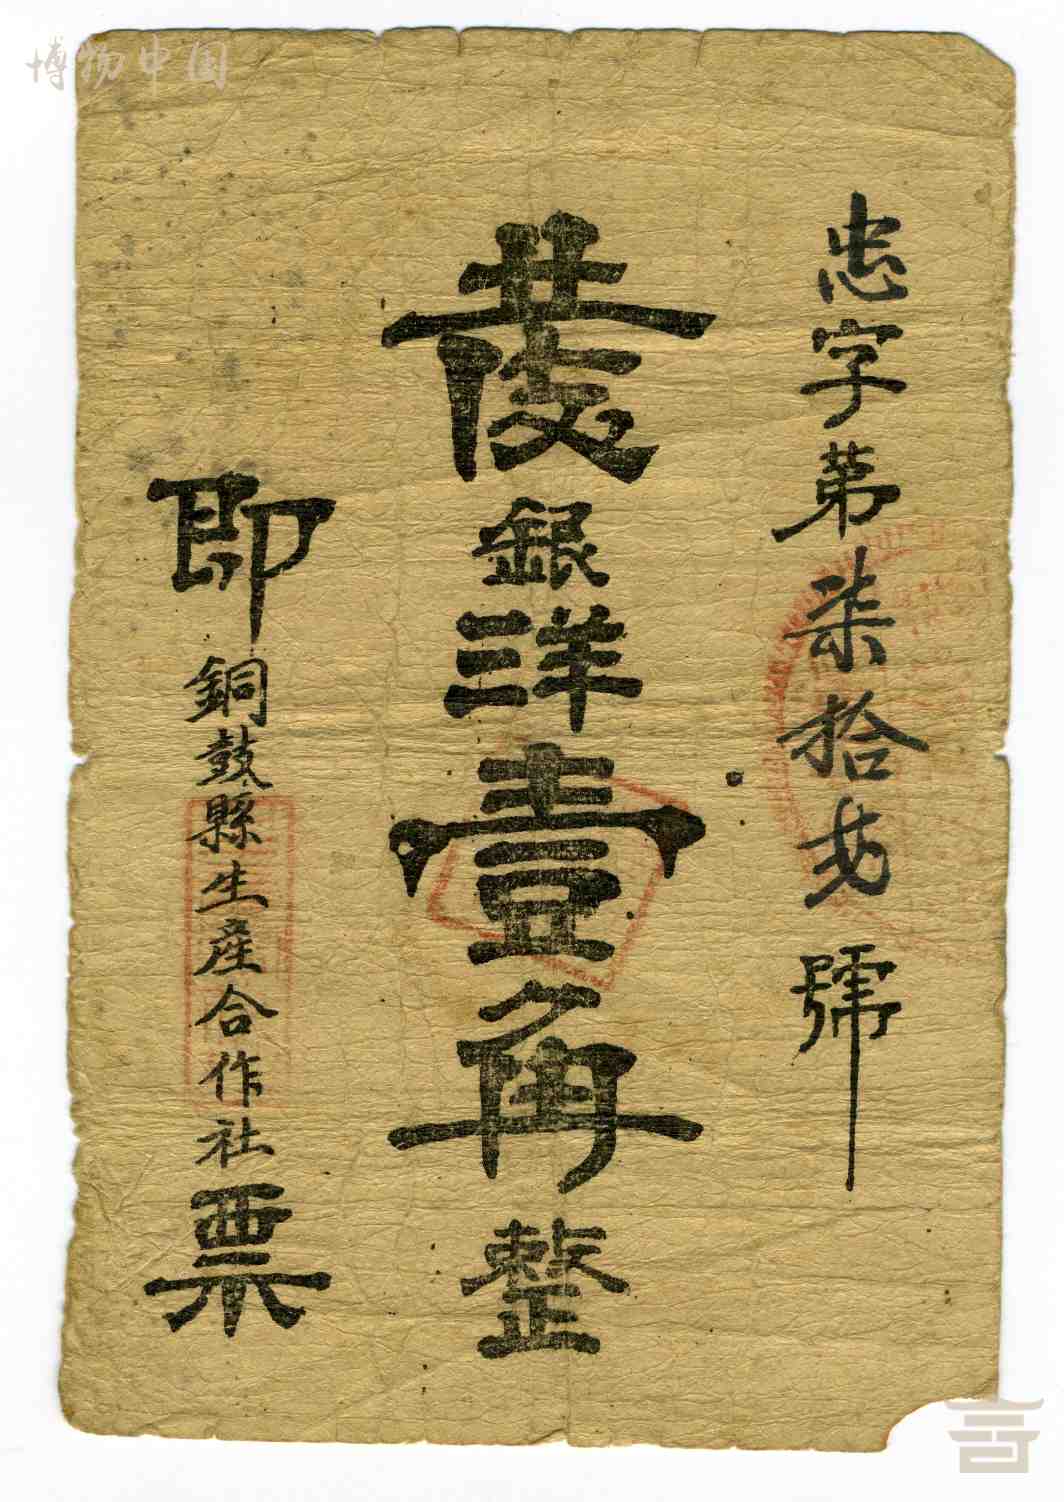 博物中国
忠字第柒拾弍號
銀洋壹角整
即銅鼓縣生產合作社票